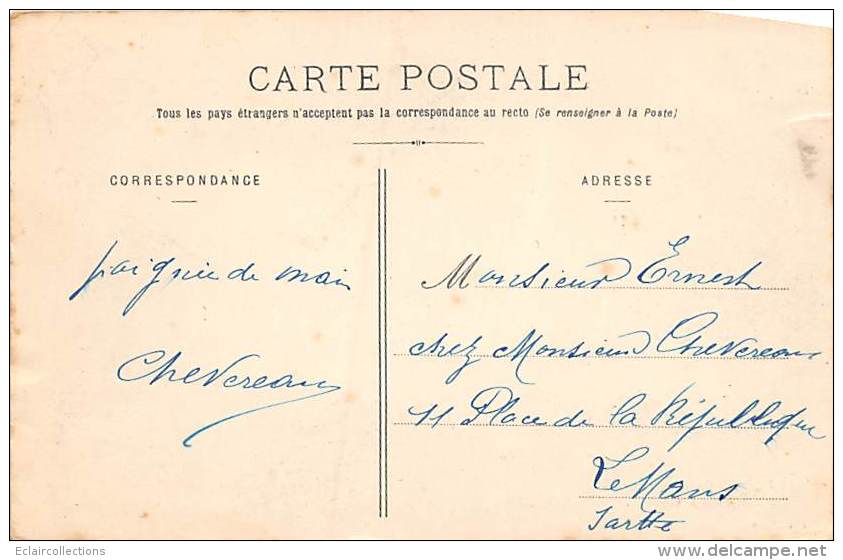 CARTE POSTALE
Tous les pays étrangers n'acceptent pas la correspondance au recto (Se renseigner à la Poste)
CORRESPONDANCE
poignée de main
Chevereau
ADRESSE
Monsieur Ernest
chez Monsieur Chevereau
11 Place de la République
Le Mans
Sarthe
Eclaircollections
delcampe.net